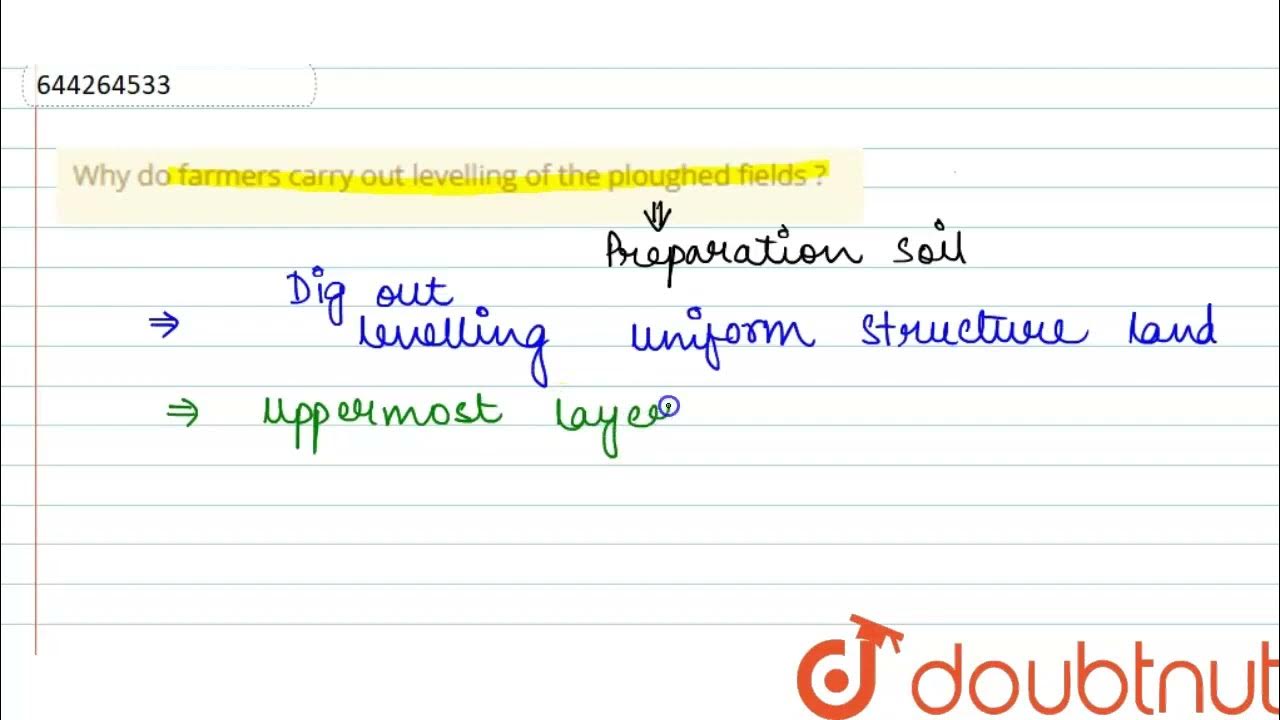 644264533
Why do farmers carry out levelling of the ploughed fields ?
⇓
Preparation soil
Dig out
⇒ levelling uniform structure land
⇒ uppermost layer
doubtnut